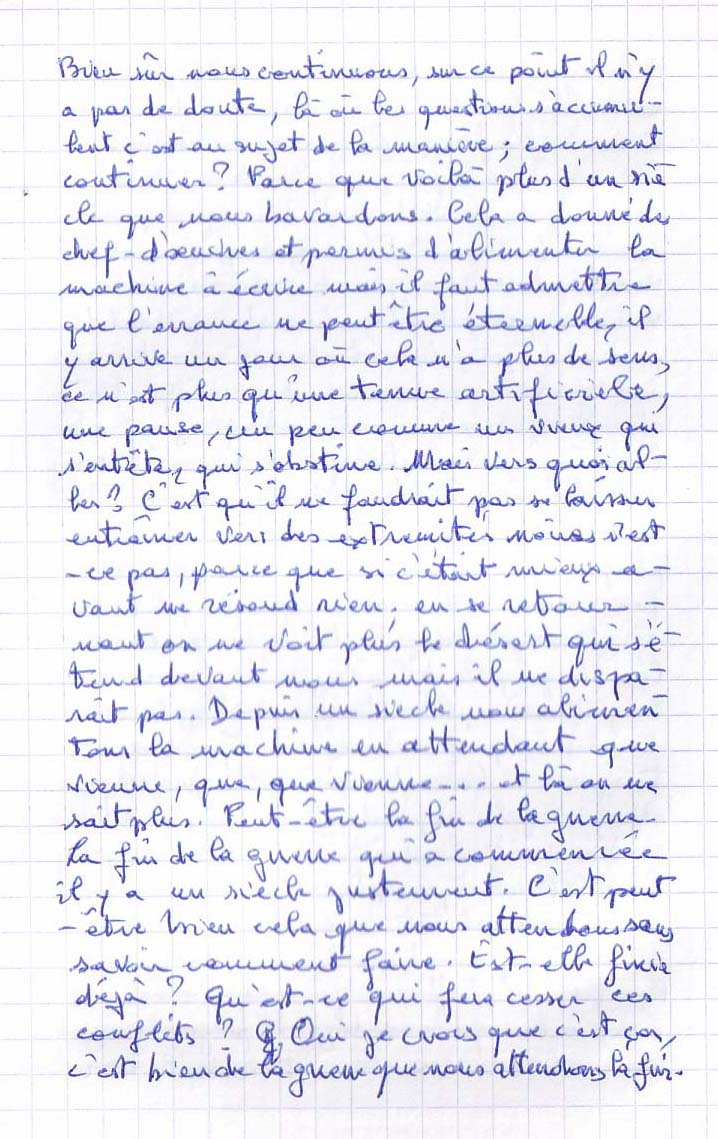 Bien sûr nous continuons, sur ce point il n'y
a pas de doute, là où les questions s'accumu-
lent c'est au sujet de la manière ; comment
continuer ? Parce que voilà plus d'un siè
cle que nous bavardons. Cela a donné des
chef-d'œuvres et permis d'alimenter la
machine à écrire mais il faut admettre
que l'errance ne peut être éternelle, il
y arrive un jour où cela n'a plus de sens,
ce n'est plus qu'une tenue artificielle,
une pause, un peu comme un vieux qui
s'entête, qui s'obstine. Mais vers quoi al-
ler ? C'est qu'il ne faudrait pas se laisser
entraîner vers des extrémités n'est
-ce pas, parce que si c'était mieux a-
vant ne résoud rien. en se retour-
nant on ne voit plus le désert qui s'é-
tend devant nous mais il ne dispa-
raît pas. Depuis un siècle nous alimen
tons la machine en attendant que
vienne, que, que vienne.... et là on ne
sait plus. Peut-être la fin de la guerre.
La fin de la guerre qui a commencée
il y a un siècle justement. C'est peut
-être bien cela que nous attendons sans
savoir comment faire. Est-elle finie
déjà ? Qu'est-ce qui fera cesser ces
conflits ? Oui je crois que c'est ça,
c'est bien de la guerre que nous attendons la fin.